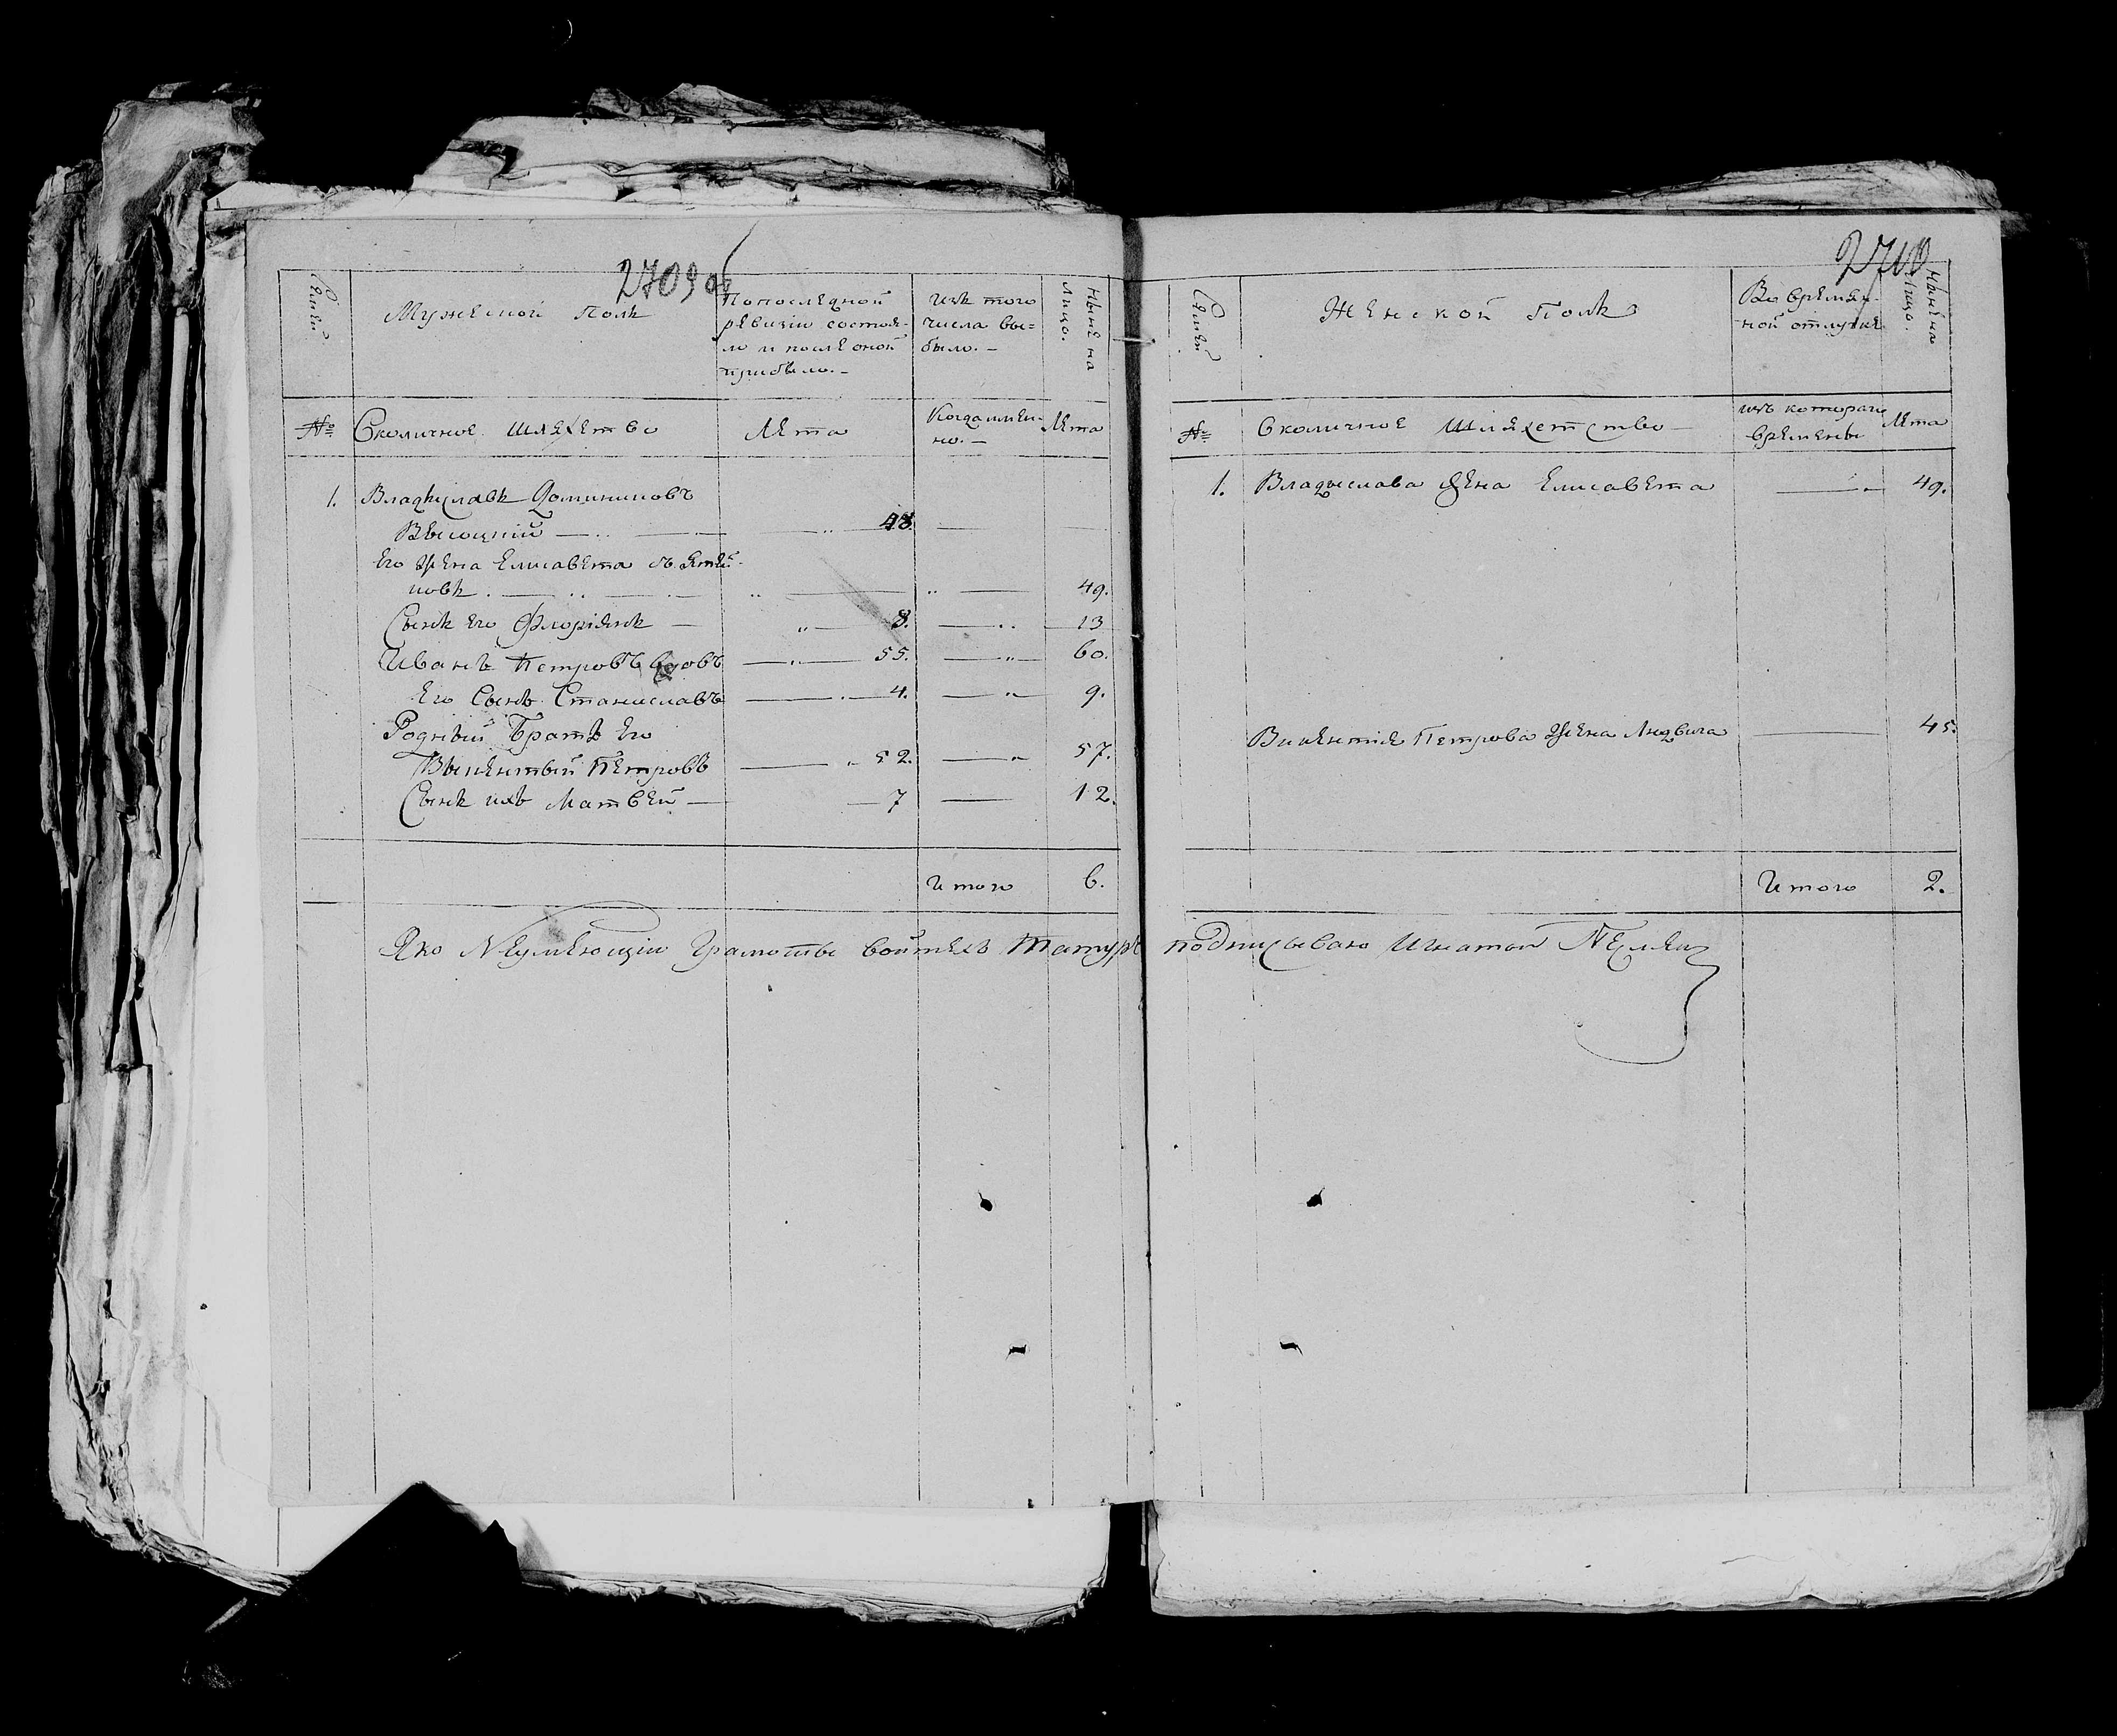 2709 об
Семей
Мужеской Полъ
Попоследной
ревизіи состоя-
ло и после оной
прибыло.-
изъ того
числа вы=
было.-
Ныне на
лицо.
№
Околичное шляхетво
Лета
Когда имен-
но.-
Лета
1. Владыславъ Доминиковъ
Высоцкій 48.
Его жена Елисавета
новъ 49.
Сынъ Его Флоріянъ 8. 13
Иванъ Петровъ вдовъ 55. 60.
Его Сынъ Станиславъ 4. 9.
Родный Братъ Его
Выкентый Петровъ 52. 57.
Сынъ ихъ Матвей 7 12.
Итого 6.
2710
Семей
Женской Полъ
Во времян-
ной отлучке
Ныне на
лицо.
№
Околичное Шляхетство
изъ котораго
времены
Лета
1. Владыслава жена Елисавета 49.
Викентія Петрова жена Людвига 45.
Итого 2.
Яко Неумеющій Грамоты войтехъ Татуръ подписываю Игнатой